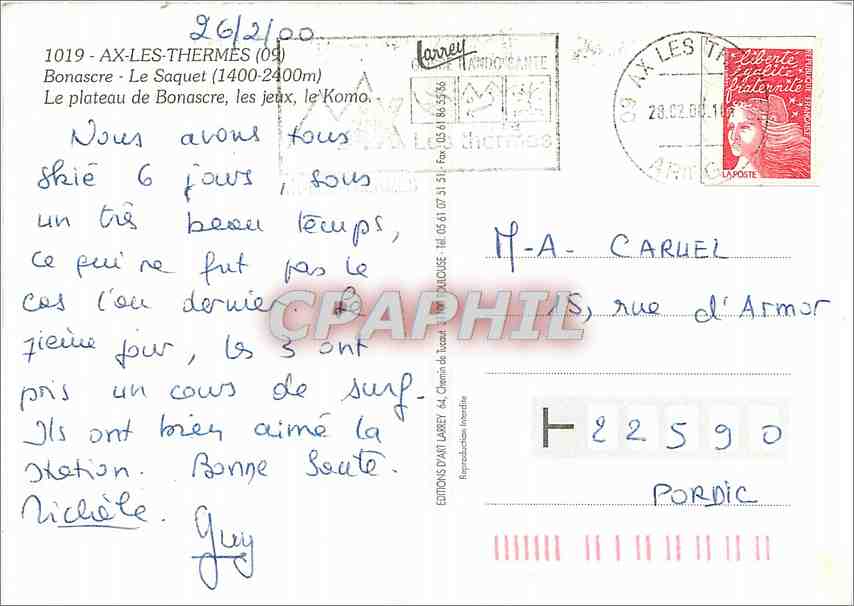 26/2/00
1019 - AX-LES-THERMES (09)
Bonascre - Le Saquet (1400-2400m)
Le plateau de Bonascre, les jeux, le Komo.
Nous avons tous
skié 6 jours, sous
un très beau temps,
ce qui ne fut pas le
cas l'an dernier. Le
7ième jour, les 3 ont
pris un cours de surf.
Ils ont bien aimé la
station. Bonne Santé.
Michèle.
Guy
Larrey
EDITIONS D'ART LARREY 64, Chemin de Tucaut 31 TOULOUSE - Tél. 05 61 07 51 51 - Fax 05 61 86 55 66
Reproduction Interdite
Les thermes
AX LES TH
09
ARIEG
liberté
égalité
fraternité
REPUBLIQUE FRANÇAISE
LA POSTE
M-A- CARUEL
15, rue d'Armor
22590
PORDIC
CPAPHIL